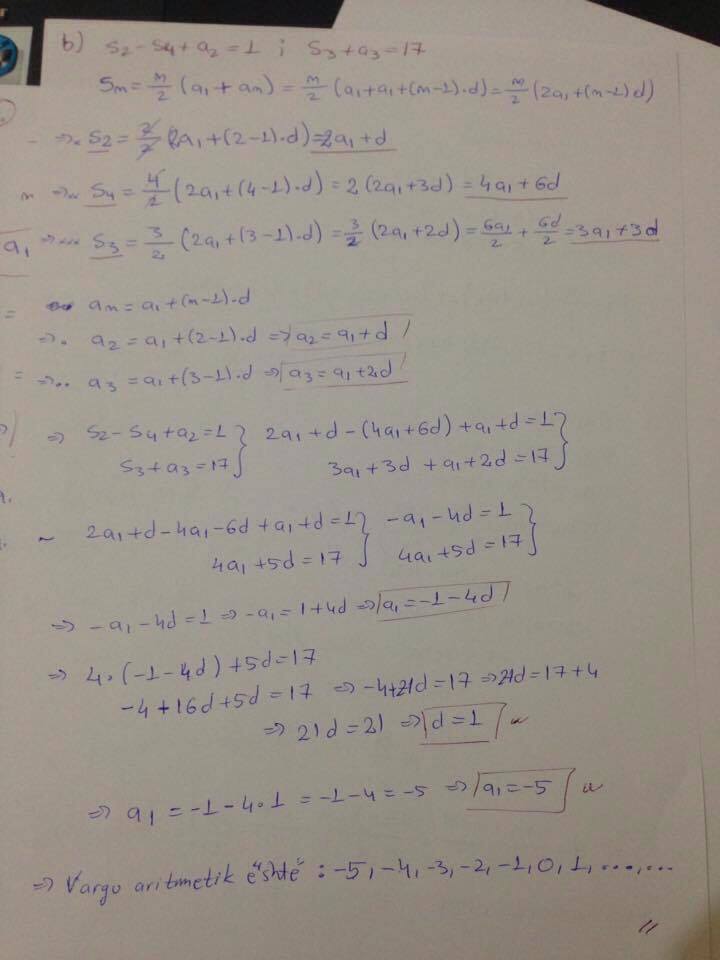 b) S2 - S4 + a2 = 1 ; S3 + a3 = 17
Sn = n/2 (a1 + an) = n/2 (a1 + a1 + (n-1)·d) = n/2 (2a1 + (n-1)d)
⇒. S2 = 2/2 (2a1 + (2-1)·d) = 2a1 + d
⇒.. S4 = 4/2 (2a1 + (4-1)·d) = 2(2a1 + 3d) = 4a1 + 6d
a1 ⇒... S3 = 3/2 (2a1 + (3-1)·d) = 3/2 (2a1 + 2d) = 6a1/2 + 6d/2 = 3a1 + 3d
= an = a1 + (n-1)·d
⇒. a2 = a1 + (2-1)·d ⇒ a2 = a1 + d
= ⇒.. a3 = a1 + (3-1)·d ⇒ a3 = a1 + 2d
⇒ S2 - S4 + a2 = 1 } 2a1 + d - (4a1 + 6d) + a1 + d = 1 }
S3 + a3 = 17 } 3a1 + 3d + a1 + 2d = 17 }
~ 2a1 + d - 4a1 - 6d + a1 + d = 1 } -a1 - 4d = 1 }
4a1 + 5d = 17 } 4a1 + 5d = 17 }
⇒ -a1 - 4d = 1 ⇒ -a1 = 1 + 4d ⇒ a1 = -1 - 4d
⇒ 4·(-1 - 4d) + 5d = 17
-4 + 16d + 5d = 17 ⇒ -4 + 21d = 17 ⇒ 21d = 17 + 4
⇒ 21d = 21 ⇒ d = 1
⇒ a1 = -1 - 4·1 = -1 - 4 = -5 ⇒ a1 = -5
⇒ Vargu aritmetik është : -5, -4, -3, -2, -1, 0, 1, ..., ...